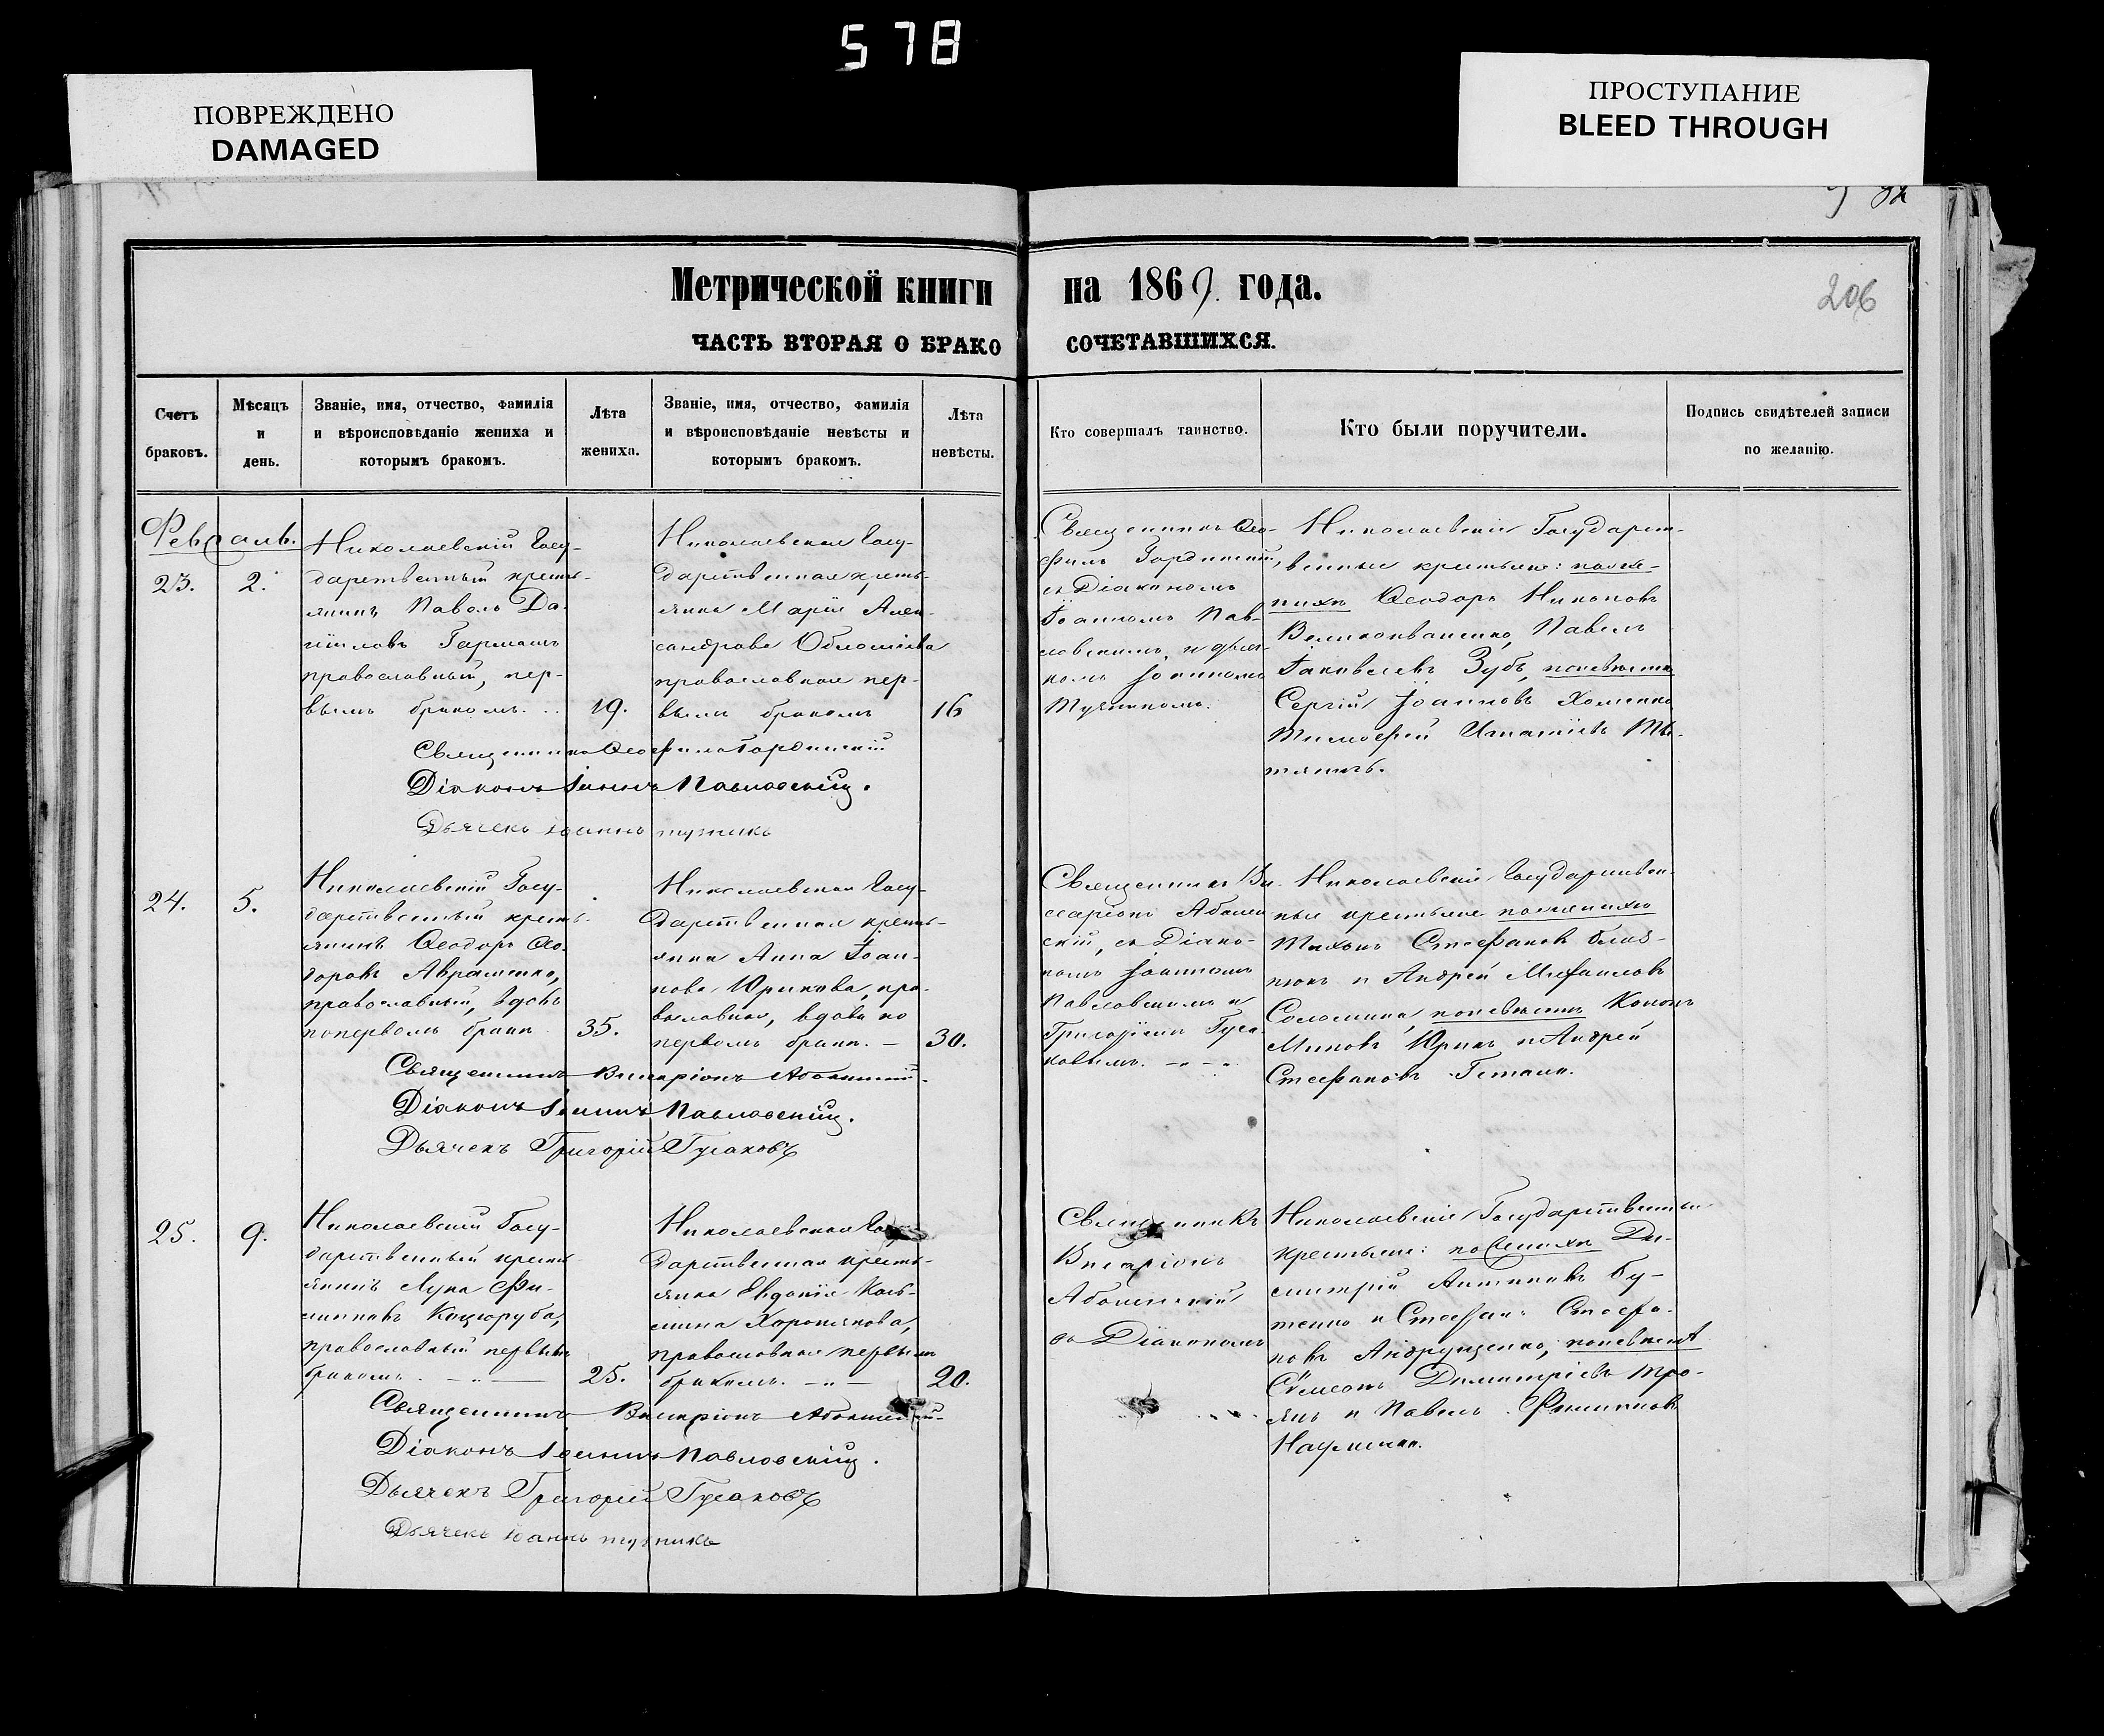 578
ПОВРЕЖДЕНО
DAMAGED
ПРОСТУПАНИЕ
BLEED THROUGH
Метрической книги на 1869 года.
206
ЧАСТЬ ВТОРАЯ О БРАКОСОЧЕТАВШИХСЯ.
Счетъ браковъ.
Мѣсяцъ и день.
Званіе, имя, отчество, фамилія и вѣроисповѣданіе жениха и которымъ бракомъ.
Лѣта жениха.
Званіе, имя, отчество, фамилія и вѣроисповѣданіе невѣсты и которымъ бракомъ.
Лѣта невѣсты.
Кто совершалъ таинство.
Кто были поручители.
Подпись свидѣтелей записи по желанію.
Февраль.
23.
2.
Николаевскій Госу-
дарственный кресть-
янинъ Павелъ Да-
ніиловъ Гармашъ
православный, пер-
вымъ бракомъ.
19.
Николаевская Госу-
дарственная кресть-
янка Марія Алек-
сандрова
православная пер-
вымъ бракомъ
16
Священникъ Ѳео-
филъ Гординскій,
съ Діакономъ
Іоанномъ Пав-
ловскимъ, и дьяч-
комъ Іоанномъ
Тузикомъ.
Николаевскіе Государст-
венные крестьяне: по же-
нихѣ Ѳеодоръ Никоновъ
Великоиваненко, Павелъ
Іаковлевъ Зубъ, по невѣстѣ
Сергій Іоанновъ Хоменко
Тимофей Игнатіевъ
Священникъ Ѳеофилъ Гординскій
Діаконъ Іоаннъ Павловскій.
Дьячекъ Іоаннъ Тузикъ
24.
5.
Николаевскій Госу-
дарственный кресть-
янинъ Ѳеодоръ Ѳео-
доровъ Авраменко,
православный, вдовъ
по первомъ бракѣ
35.
Николаевская Госу-
дарственная кресть-
янка Анна Іоан-
нова Юрикова, пра-
вославная, вдова по
первомъ бракѣ. —
30.
Священникъ Ви-
саріонъ
скій, съ Діако-
номъ Іоанномъ
Павловскимъ и
Григоріемъ Гуса-
ковымъ.
Николаевскіе Государствен-
ные крестьяне по женихѣ
Тихонъ Стефановъ
и Андрей Михаиловъ
Соломаха, по невѣстѣ Кононъ
Миновъ Юрикъ и Андрей
Стефановъ
Священникъ Висаріонъ
Діаконъ Іоаннъ Павловскій.
Дьячекъ Григорій Гусаковъ
25.
9.
Николаевскій Госу-
дарственный кресть-
янинъ Лука Фи-
липповъ Коцюруба,
православный первымъ
бракомъ.
25.
Николаевская Госу-
дарственная кресть-
янка Евдокія Козь-
мина
православная первымъ
бракомъ.
20.
Священникъ
Висаріонъ
съ Діакономъ
Николаевскіе Государственные
крестьяне: по женихѣ Ди-
митрій Антоновъ Бу-
тенко и Стефанъ Стефа-
новъ Андрущенко, по невѣстѣ
Симеонъ Димитріевъ Тро-
янъ и Павелъ Филипповъ
Науменко.
Священникъ Висаріонъ
Діаконъ Іоаннъ Павловскій.
Дьячекъ Григорій Гусаковъ
Дьячекъ Іоаннъ Тузикъ